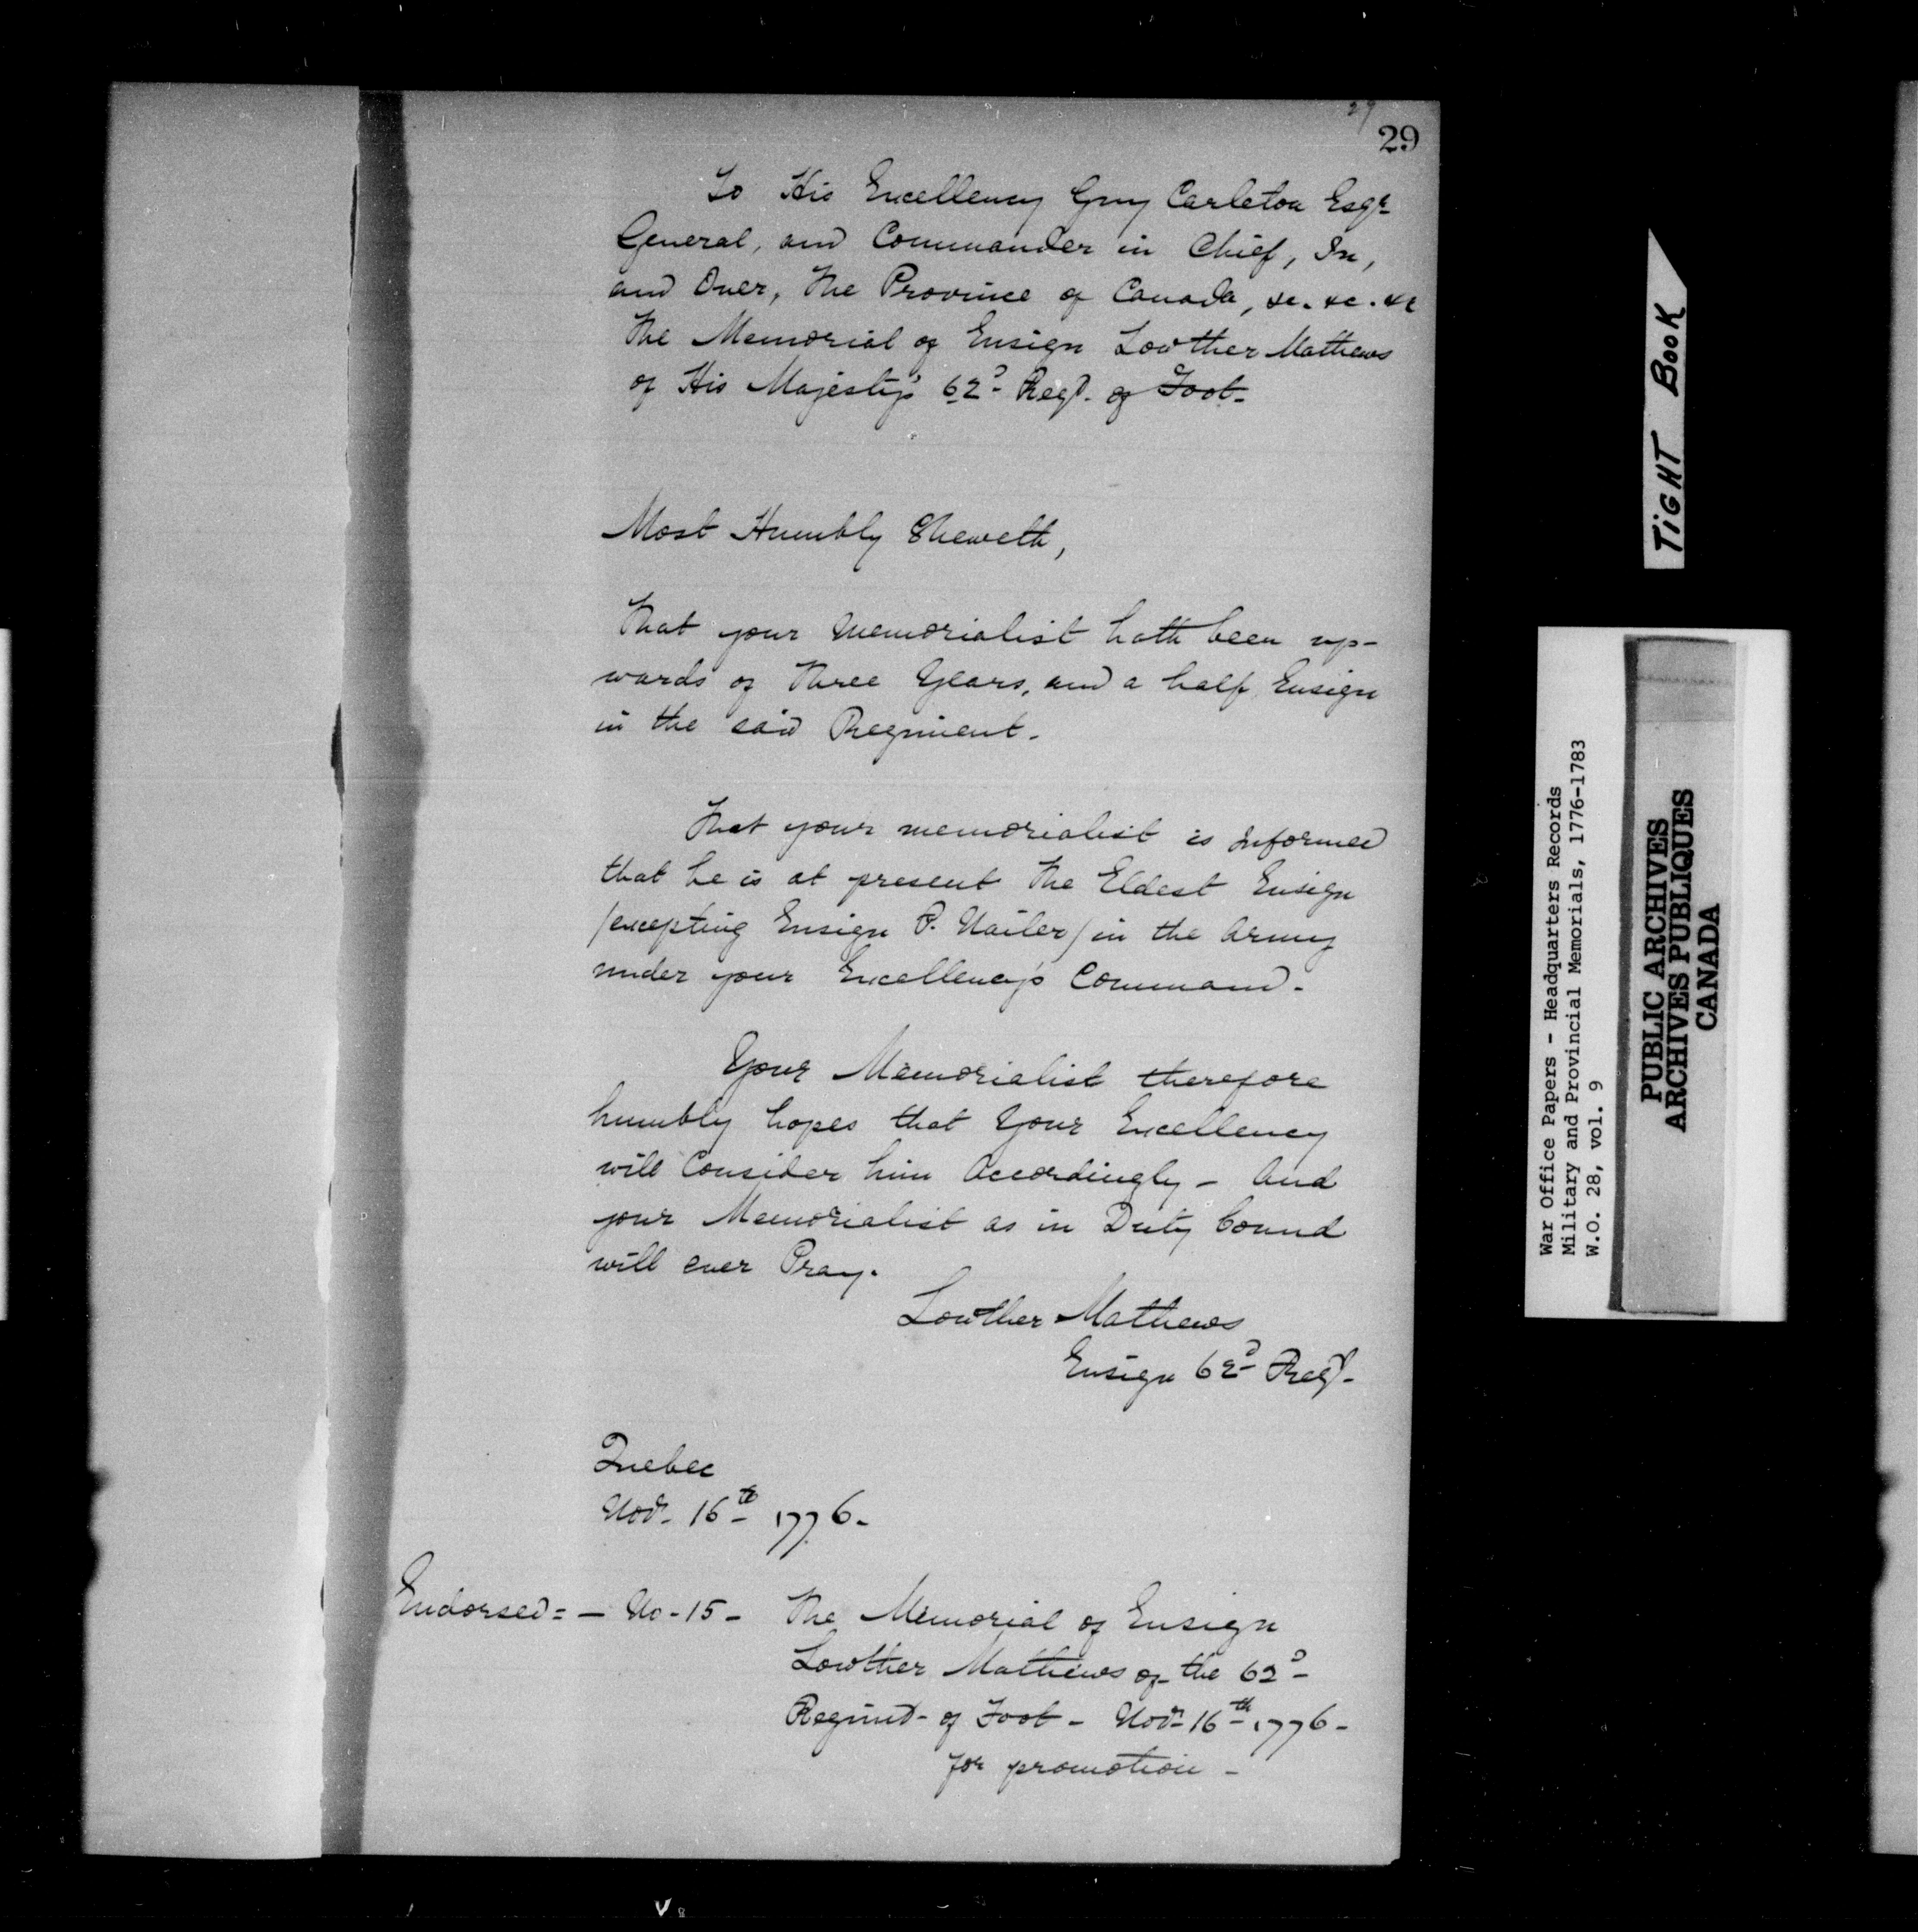 29
29
To His Excellency Guy Carleton Esqr
General, and Commander in Chief, In,
and Over, The Province of Canada, &c. &c. &c
The Memorial of Ensign Lowther Mathews
of His Majesty's 62d Regt. of Foot-
Most Humbly Sheweth,
That your Memorialist hath been up-
wards of Three Years, and a half, Ensign
in the said Regiment.
That your memorialist is Informed
that he is at present The Eldest Ensign
/excepting Ensign P. Nailer/ in the Army
under your Excellency's Command.
Your Memorialist therefore
humbly hopes that Your Excellency
will Consider him Accordingly - And
your Memorialist as in Duty bound
will ever Pray.
Lowther Mathews
Ensign 62d Regt-
Quebec
Novr. 16th 1776-
Endorsed = - No-15- The Memorial of Ensign
Lowther Mathews of the 62d-
Regimt- of Foot - Novr 16th 1776-
for promotion -
TIGHT BOOK
War Office Papers - Headquarters Records
Military and Provincial Memorials, 1776-1783
W.O. 28, vol. 9
PUBLIC ARCHIVES
ARCHIVES PUBLIQUES
CANADA